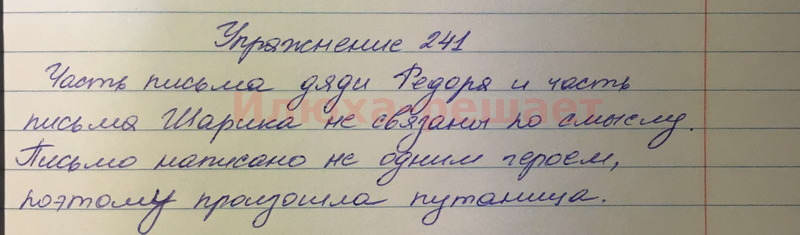 Упражнение 241
Часть письма дяди Федора и часть
Илюха-решает
письма Шарика не связаны по смыслу.
Письмо написано не одним героем,
поэтому произошла путаница.